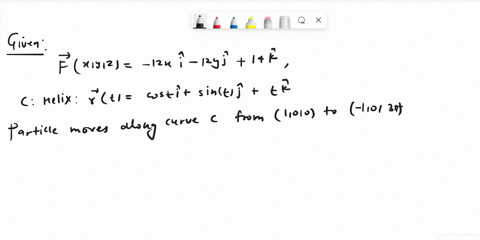 Given:
F⃗(x,y,z) = -12x î - 12y ĵ + 14 k̂,
C: Helix: r⃗(t) = cost î + sin(t) ĵ + t k̂
Particle moves along curve C from (1,0,0) to (-1,0,3π)